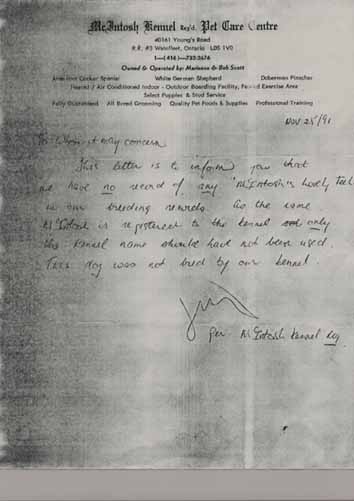 McIntosh Kennel Reg'd. Pet Care Centre
40161 Young's Road
R.R. #3 Wainfleet, Ontario L0S 1V0
1—(416)—732-2676
Owned & Operated by: Marianne & Bob Scott
American Cocker Spaniel White German Shepherd Doberman Pinscher
Heated / Air Conditioned Indoor - Outdoor Boarding Facility, Fenced Exercise Area
Select Puppies & Stud Service
Fully Guaranteed All Breed Grooming Quality Pet Foods & Supplies Professional Training
Nov 25/91
To Whom it may concern
This letter is to inform you that
we have no record of any "McIntosh's Lovely
in our breeding records. As the name
McIntosh is registered to the kennel only
this Kennel name should have not been used.
This dog was not bred by our kennel.
per McIntosh Kennel Reg